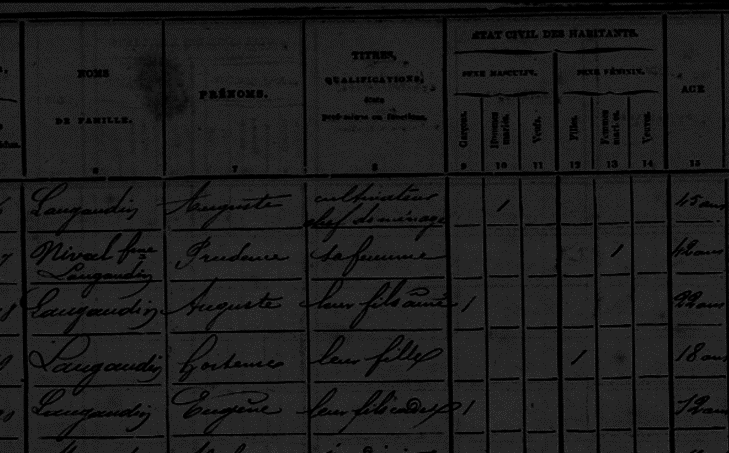 NOMS
DE FAMILLE.
6
PRÉNOMS.
7
TITRES,
QUALIFICATIONS,
états
professions ou fonctions.
8
ÉTAT CIVIL DES HABITANTS.
SEXE MASCULIN.
SEXE FÉMININ.
Garçons.
Hommes mariés.
Veufs.
Filles.
Femmes mariées.
Veuves.
9 10 11 12 13 14
AGE
15
Laugaudin Auguste cultivateur chef de ménage 1 45 ans
Nival fme Laugaudin Prudence sa femme 1 42 ans
Laugaudin Auguste leur fils ainé 1 22 ans
Laugaudin Hortense leur fille 1 18 ans
Laugaudin Eugène leur fils cadet 1 12 ans